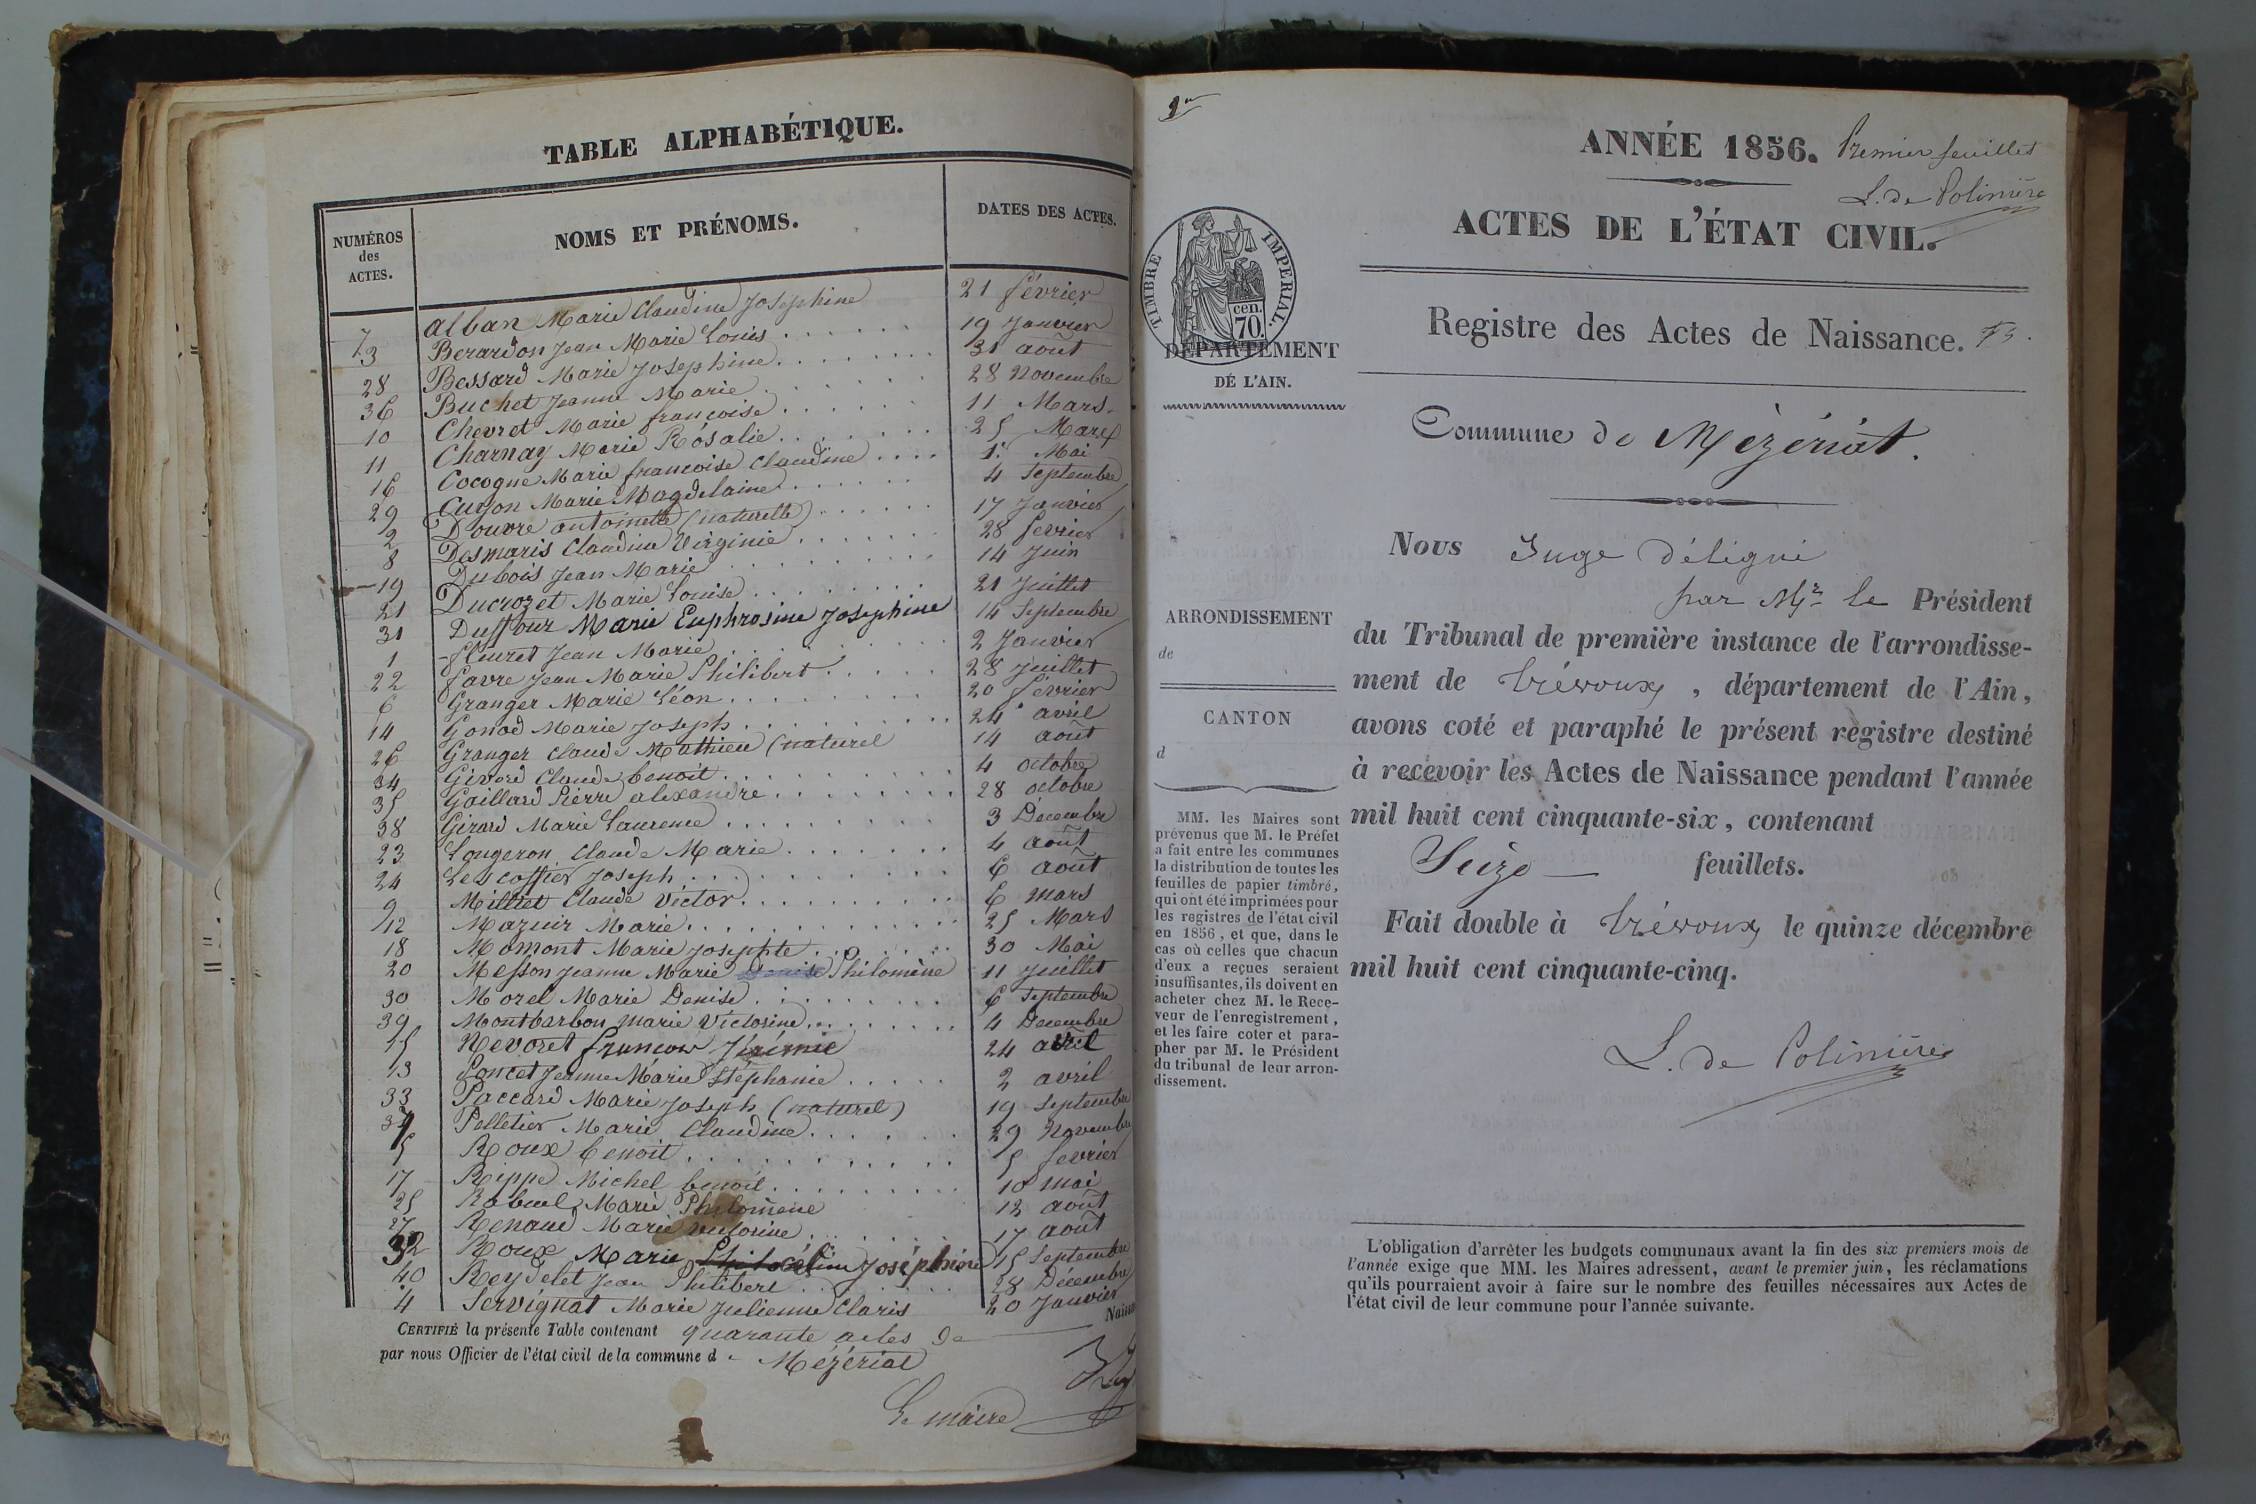 TABLE ALPHABÉTIQUE.
NUMÉROS des ACTES. NOMS ET PRÉNOMS. DATES DES ACTES.
7 Alban Marie Claudine Josephine 21 février
3 Berardon Jean Marie Louis 19 Janvier
28 Bessard Marie Josephine 31 août
36 Buchet Jeanne Marie 28 Novembre
10 Chevret Marie françoise 11 Mars
11 Charnay Marie Rosalie 25 Mars
16 Cocogne Marie françoise Claudine 1. Mai
29 Curson Marie Magdelaine 4 Septembre
2 Douvre antoinette (naturelle) 17 Janvier
8 Desmaris Claudine Virginie 28 fevrier
19 Dubois Jean Marie 14 Juin
21 Ducrozet Marie Louise 21 Juillet
31 Duffour Marie Euphrosine Josephine 14 Septembre
1 fleuret Jean Marie 2 Janvier
22 favre Jean Marie Philibert 28 Juillet
6 Granger Marie Léon 20 fevrier
14 Gonod Marie Joseph 24 avril
26 Granger Claude Mathieu (naturel 14 août
34 Givord Claude benoit 4 octobre
35 Gaillard Pierre alexandre 28 octobre
38 Girard Marie Laurence 3 Décembre
23 Longeron Claude Marie 4 août
24 Lescoffier Joseph 6 août
9 Milliet Claude Victor 6 mars
12 Mazuir Marie 25 Mars
18 Momont Marie Josephte 30 Mai
20 Messon Jeanne Marie Denise Philomène 11 Juillet
30 Morel Marie Denise 6 Septembre
39 Montbarbon marie Victorine 4 Decembre
15 Nevoret françois Jérémie 24 avril
13 Poncet Jeanne Marie Stéphanie 2 avril
33 Paccard Marie Joseph (naturel) 19 Septembre
37 Pelletier Marie Claudine 29 Novembre
5 Roux benoit 5 fevrier
17 Rippe Michel benoit 10 mai
25 Rabuel Marie Philomène 12 août
27 Renaud Marie Victorine 17 août
32 Roux Marie Josephine 15 Septembre
40 Reydelet Jean Philibert 28 Décembre
4 Servignat Marie Julienne Claris 20 Janvier
CERTIFIÉ la présente Table contenant quarante actes de Naiss
par nous Officier de l'état civil de la commune d Mézériat
Le maire
1er
ANNÉE 1856. Premier feuillet
L. de Polinière
ACTES DE L'ÉTAT CIVIL.
TIMBRE IMPÉRIAL.
cen. 70.
Registre des Actes de Naissance.
DÉPARTEMENT
DE L'AIN.
Commune de Mézériat.
Nous Juge délégué
par Mr le Président
ARRONDISSEMENT
de
CANTON
d
du Tribunal de première instance de l'arrondisse-
ment de Trévoux, département de l'Ain,
avons coté et paraphé le présent registre destiné
à recevoir les Actes de Naissance pendant l'année
mil huit cent cinquante-six, contenant
Seize feuillets.
Fait double à Trévoux le quinze décembre
mil huit cent cinquante-cinq.
L. de Polinière
MM. les Maires sont
prévenus que M. le Préfet
a fait entre les communes
la distribution de toutes les
feuilles de papier timbré,
qui ont été imprimées pour
les registres de l'état civil
en 1856, et que, dans le
cas où celles que chacun
d'eux a reçues seraient
insuffisantes, ils doivent en
acheter chez M. le Rece-
veur de l'enregistrement,
et les faire coter et para-
pher par M. le Président
du tribunal de leur arron-
dissement.
L'obligation d'arrêter les budgets communaux avant la fin des six premiers mois de
l'année exige que MM. les Maires adressent, avant le premier juin, les réclamations
qu'ils pourraient avoir à faire sur le nombre des feuilles nécessaires aux Actes de
l'état civil de leur commune pour l'année suivante.